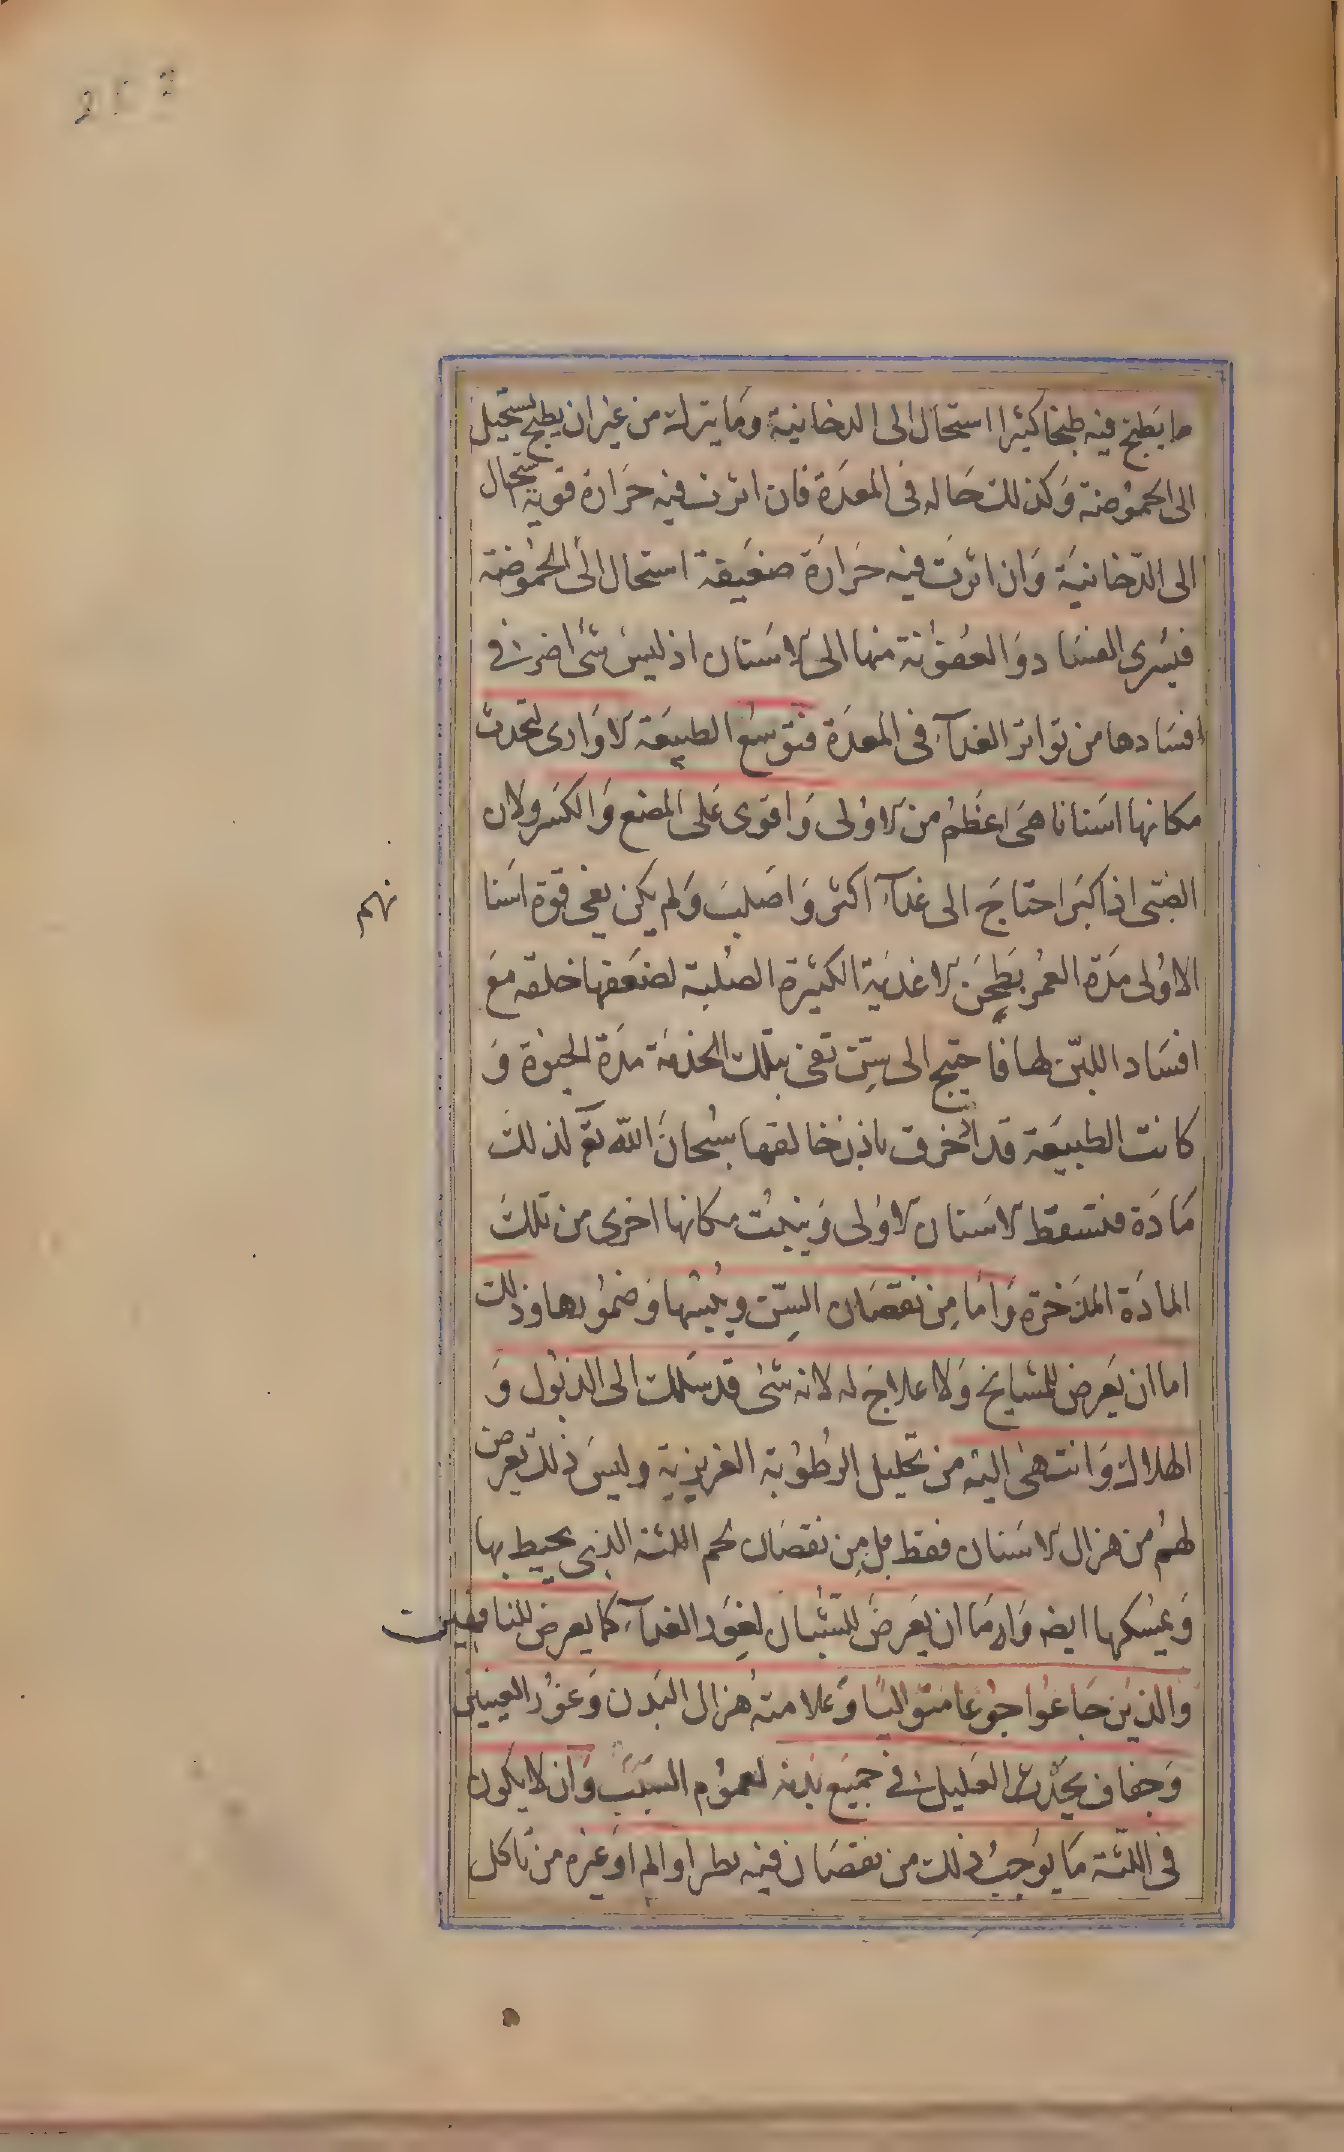 ما يطبخ فيه طبخا كثيرا استحال الى الدخانية وما يترك من غير ان يطبخ يستحيل
الى الحموضة وكذلك حاله فى المعدة فان اثرت فيه حرارة قوية استحال
الى الدّخانية وان اثرت فيه حرارة ضعيفة استحال الى الحموضة
فيسرى الفساد والعفونة منها الى الاسنان اذ ليس شئ اضر فى
افسادها من تواتر الغدآء فى المعدة الطبيعة الاوارى لتحدث
مكانها اسنانا هى اعظم من الاولى واقوى على المضغ والكسر ولان
الصّبى اذا كبر احتاج الى غدآء اكثر واصلب ولم يكن يفى قوة اسنا
نهم
الاولى مدة العمر بطحن الاغدية الكثيرة الصلبة لضعفها خلقة مع
افساد اللبن لها فاحتيج الى سِنّ تفى بتلك الخدمة مدة الحيوة و
كانت الطبيعة قد ادخرت باذن خالقها سبحان الله تع لذلك
مادة فتسقط الاسنان الاولى وينبت مكانها اخرى من تلك
المادة المدخرة واما من نقصان السِّن ويبسها وضمورها وذلك
اما ان يعرض للمشايخ ولا علاج له لانه شئ قد سلك الى الذبول و
الهلاك وانتهى اليه من تحليل الرطوبة الغريزية وليس ذلك يعرض
لهم من هزال الاسنان فقط بل من نقصان لحم اللثة الذى يحيط بها
ويمسكها ايضه واما ان يعرض للشبان لعوز الغدآء كما يعرض للناقهين
والذين جاعوا جوعا متواليا وعلامته هزال البدن وغور العينين
وجفاف يحدث العليل فى جميع بدنه لعموم السبب وان لا يكون
فى اللثة ما يوجب ذلك من نقصان فيه بطر او الم او غيره من تاكل